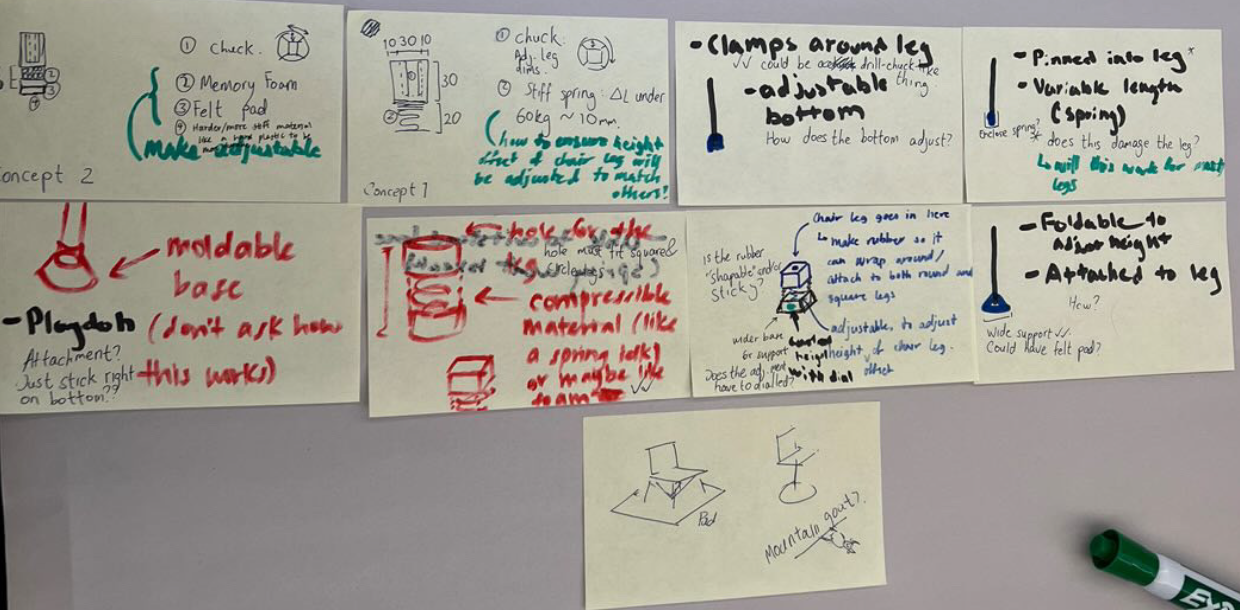 ① chuck.
② Memory Foam
③ Felt pad
④ Harder/more stiff material
like a hard plastic to be
make adjustable
② ③
④
oncept 2
10 30 10
30
20
②
① chuck.
Adj. leg
dims.
② Stiff spring: ΔL under
60kg ~ 10mm.
how to ensure height
offset of chair leg will
be adjusted to match
others?
Concept 1
- Clamps around leg
√√ could be a drill-chuck-like
thing.
- adjustable
bottom
How does the bottom adjust?
- Pinned into leg*
- Variable length
(spring)
Enclose spring?
* does this damage the leg?
↳ will this work for most
legs
← moldable
base
- Playdoh (don't ask how
this works)
Attachment?
Just stick right
on bottom??
← hole for the
leg
hole must fit square &
circle legs
← compressible
material (like
a spring
or maybe like
foam √√
chair leg goes in here
↳ make rubber so it
can wrap around/
attach to both round and
square legs
Is the rubber
"shapable" and/or
sticky?
wider base
for support
adjustable, to adjust
height of chair leg.
offset
height
with dial
Does the adj. mech
have to dialled?
- Foldable to
adjust height
- Attached to leg
How?
Wide support √√.
Could have felt pad?
Pad
Mountain goat?
EXP